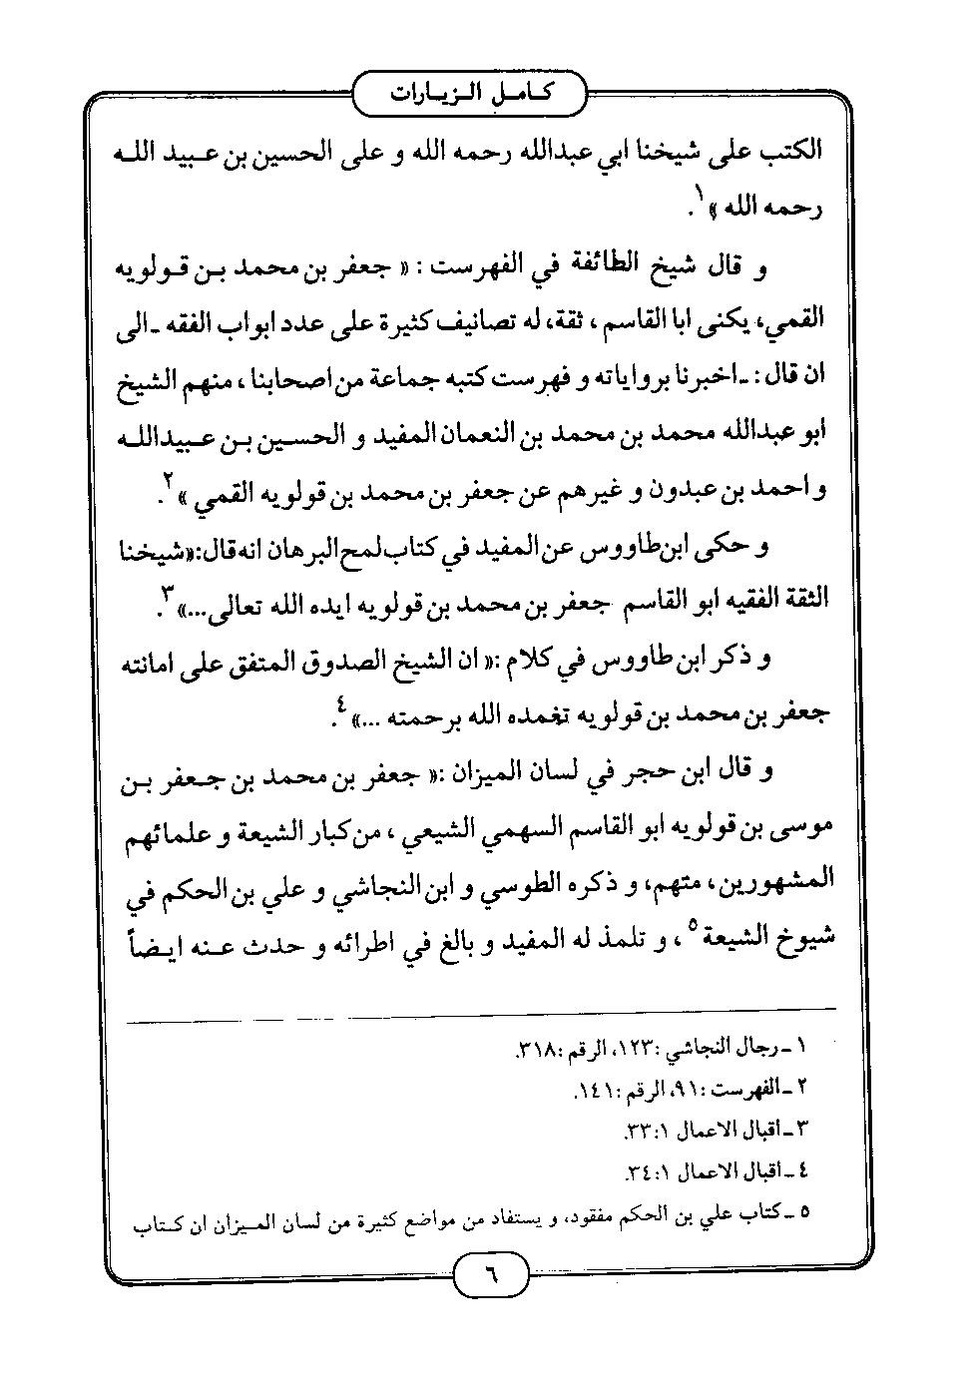 كامل الزيارات
الكتب على شيخنا ابي عبدالله رحمه الله و على الحسين بن عبيد الله
رحمه الله »١.
و قال شيخ الطائفة في الفهرست : « جعفر بن محمد بن قولويه
القمي، يكنى ابا القاسم ، ثقة، له تصانيف كثيرة على عدد ابواب الفقه ـ الى
ان قال : ـ اخبرنا برواياته و فهرست كتبه جماعة من اصحابنا ، منهم الشيخ
ابو عبدالله محمد بن محمد بن النعمان المفيد و الحسين بن عبيدالله
و احمد بن عبدون و غيرهم عن جعفر بن محمد بن قولويه القمي »٢.
و حكى ابن طاووس عن المفيد في كتاب لمح البرهان انه قال: «شيخنا
الثقة الفقيه ابو القاسم جعفر بن محمد بن قولويه ايده الله تعالى...»٣.
و ذكر ابن طاووس في كلام :« ان الشيخ الصدوق المتفق على امانته
جعفر بن محمد بن قولويه تغمده الله برحمته ...»٤.
و قال ابن حجر في لسان الميزان :« جعفر بن محمد بن جعفر بن
موسى بن قولويه ابو القاسم السهمي الشيعي ، من كبار الشيعة و علمائهم
المشهورين، متهم، و ذكره الطوسي و ابن النجاشي و علي بن الحكم في
شيوخ الشيعة٥ ، و تلمذ له المفيد و بالغ في اطرائه و حدث عنه ايضاً
١ ـ رجال النجاشي :١٢٣، الرقم :٣١٨.
٢ ـ الفهرست :٩١، الرقم :١٤١.
٣ ـ اقبال الاعمال ١ :٣٣.
٤ ـ اقبال الاعمال ١ :٣٤.
٥ ـ كتاب علي بن الحكم مفقود، و يستفاد من مواضع كثيرة من لسان الميزان ان كتاب
٦